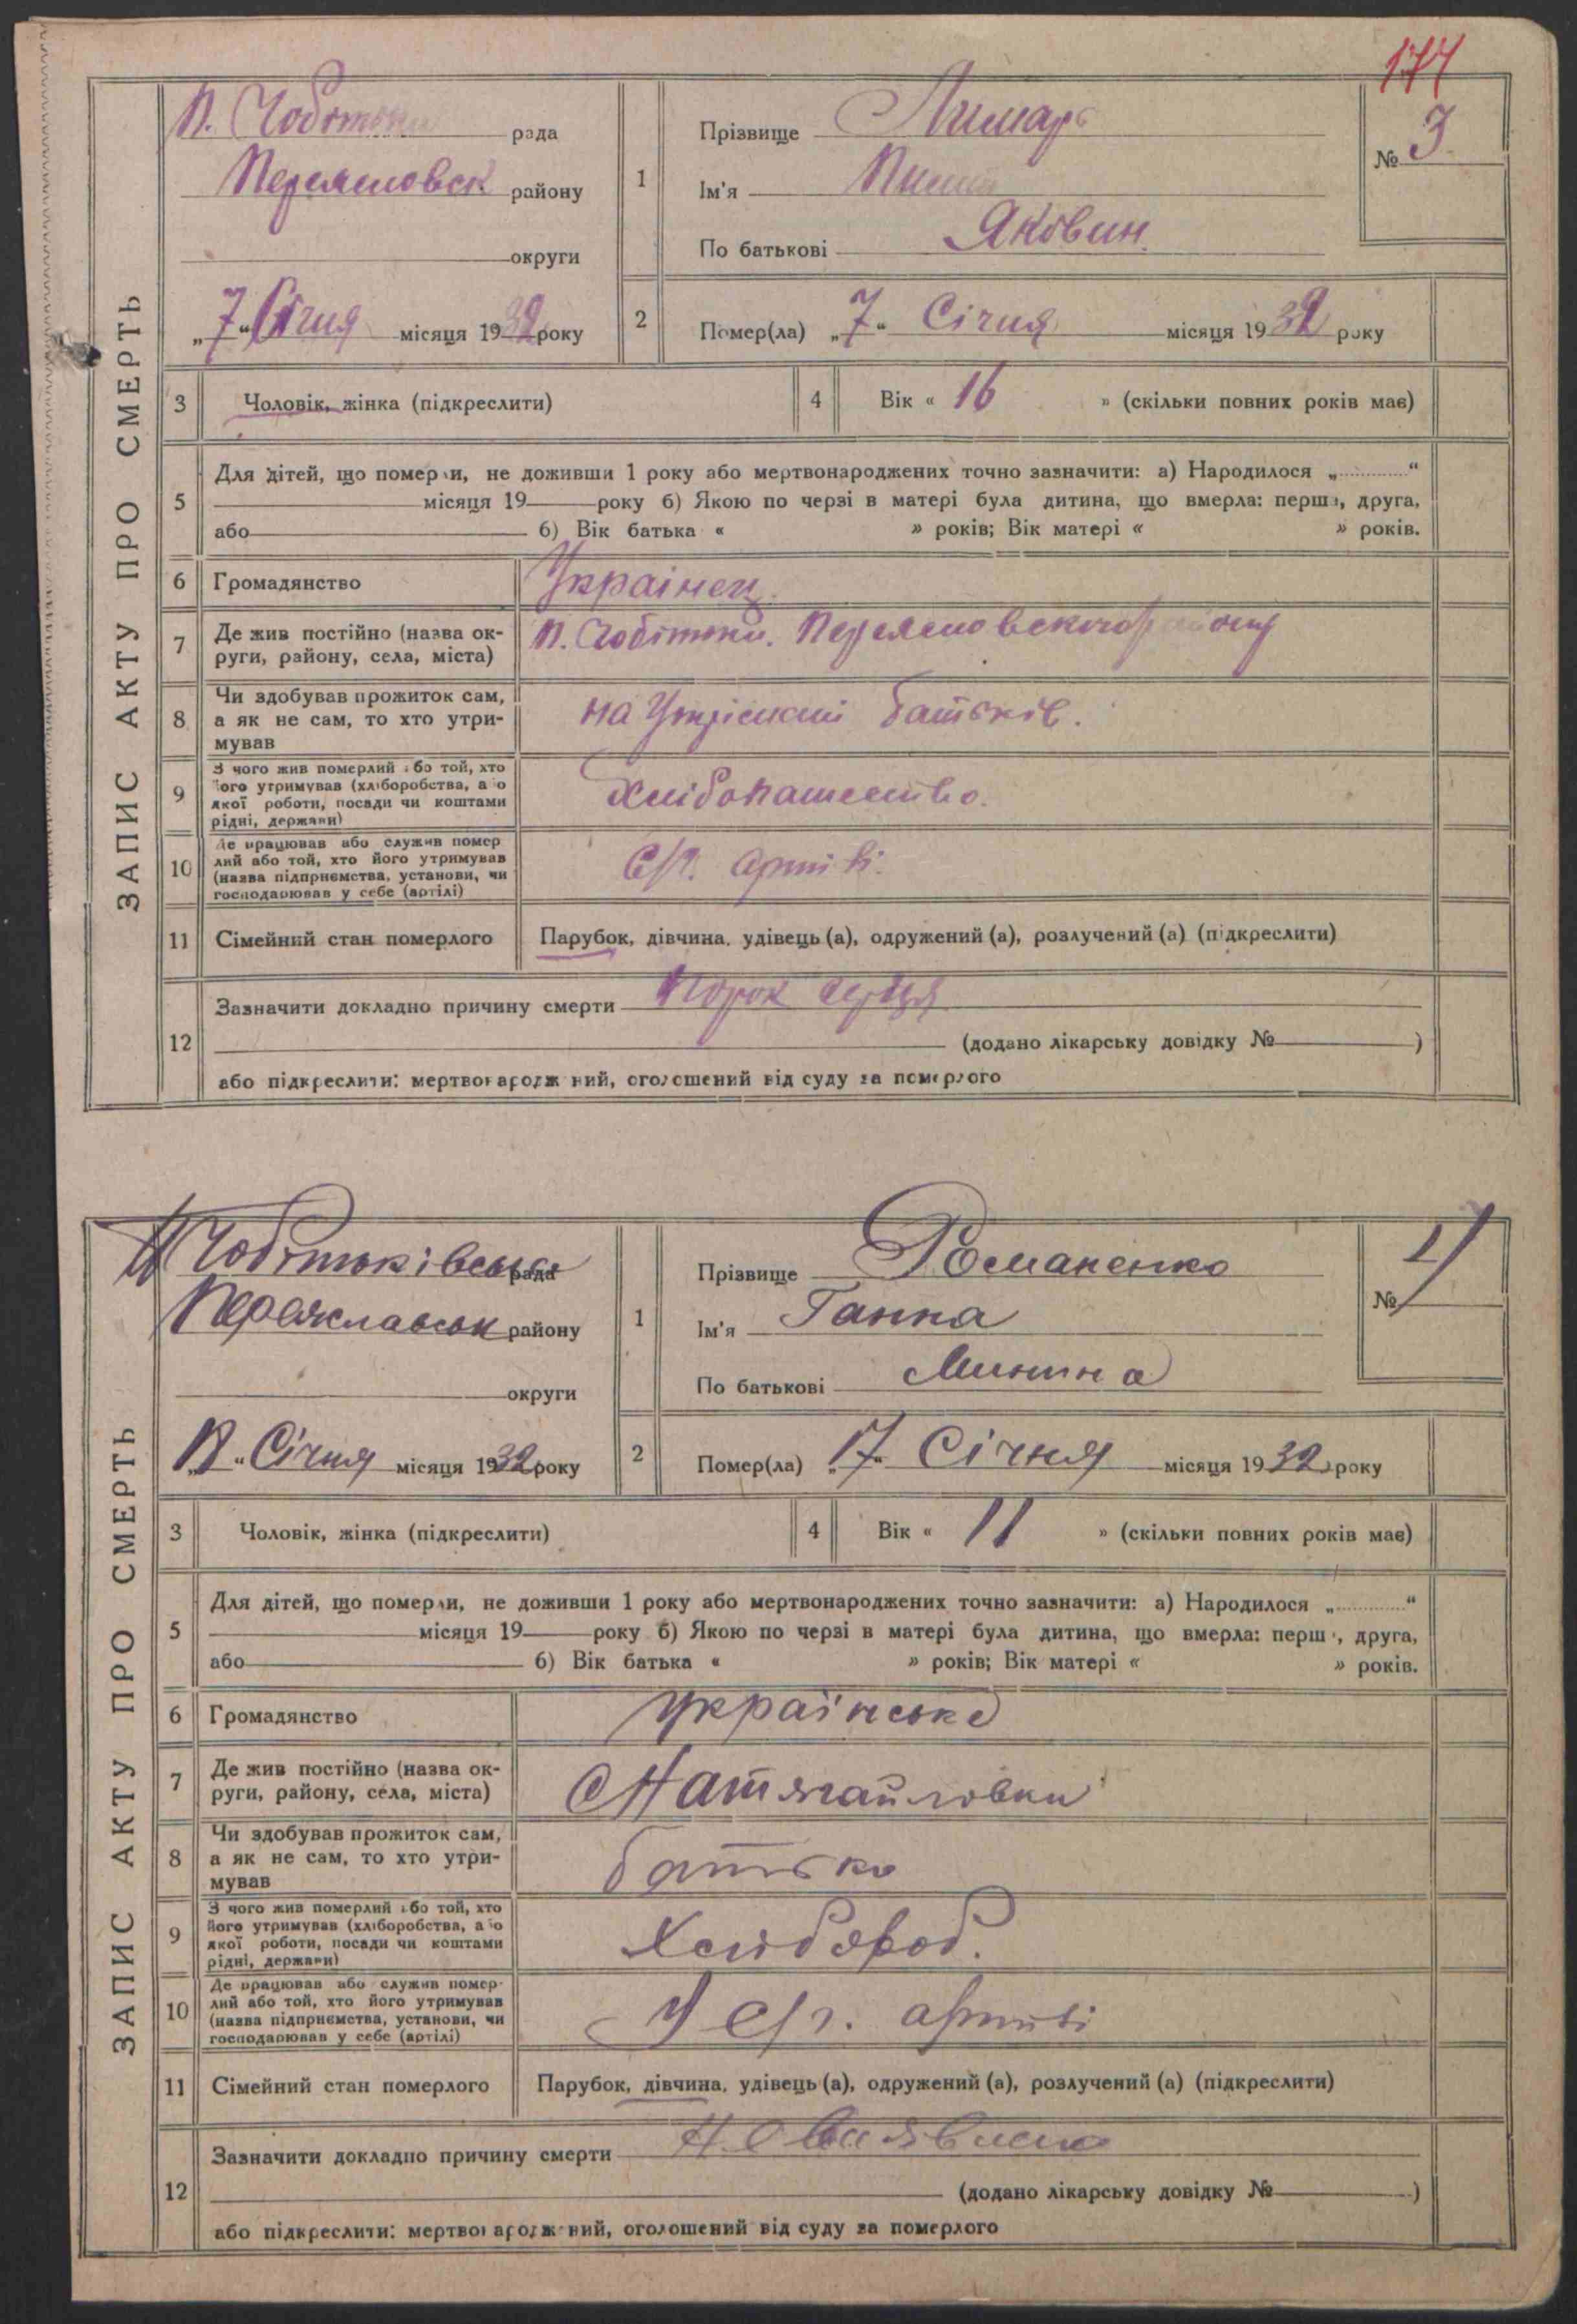 174
ЗАПИС АКТУ ПРО СМЕРТЬ
П. рада
району
округи
„7“ Січня місяця 1932 року
1
Прізвище Лимарь
Ім'я
По батькові Яковин.
№ 3
2
Помер(ла) „7“ Січня місяця 1932 року
3 Чоловік, жінка (підкреслити)
4 Вік « 16 » (скільки повних років має)
5
Для дітей, що померли, не доживши 1 року або мертвонароджених точно зазначити: а) Народилося „ “
місяця 19 року б) Якою по черзі в матері була дитина, що вмерла: перша, друга,
або б) Вік батька « » років; Вік матері « » років.
6 Громадянство Українец.
7 Де жив постійно (назва ок-
руги, району, села, міста)
П. Чобітьки.
8 Чи здобував прожиток сам,
а як не сам, то хто утри-
мував
на батьків.
9 З чого жив померлий або той, хто
його утримував (хліборобства, а о
якої роботи, посади чи коштами
рідні, держави)
Хлібопашество.
10 Де працював або служив помер
лий або той, хто його утримував
(назва підприємства, установи, чи
господарював у себе (артілі)
С/г. артілі.
11 Сімейний стан померлого Парубок, дівчина, удівець (а), одружений (а), розлучений (а) (підкреслити)
12
Зазначити докладно причину смерти Порок серця
(додано лікарську довідку № )
або підкреслити: мертвонароджений, оголошений від суду за померлого
ЗАПИС АКТУ ПРО СМЕРТЬ
рада
району
округи
Січня місяця 1932 року
1
Прізвище Романенко
Ім'я Ганна
По батькові Минина
№ 4
2
Помер(ла) „17“ Січня місяця 1932 року
3 Чоловік, жінка (підкреслити)
4 Вік « 11 » (скільки повних років має)
5
Для дітей, що померли, не доживши 1 року або мертвонароджених точно зазначити: а) Народилося „ “
місяця 19 року б) Якою по черзі в матері була дитина, що вмерла: перш , друга,
або б) Вік батька « » років; Вік матері « » років.
6 Громадянство українське
7 Де жив постійно (назва ок-
руги, району, села, міста)
С Натягайловки
8 Чи здобував прожиток сам,
а як не сам, то хто утри-
мував
батько
9 З чого жив померлий або той, хто
його утримував (хліборобства, а о
якої роботи, посади чи коштами
рідні, держави)
Хлібороб.
10 Де працював або служив помер-
лий або той, хто його утримував
(назва підприємства, установи, чи
господарював у себе (артілі)
У с/г. артілі
11 Сімейний стан померлого Парубок, дівчина, удівець (а), одружений (а), розлучений (а) (підкреслити)
12
Зазначити докладно причину смерти
(додано лікарську довідку № )
або підкреслити: мертвонароджений, оголошений від суду за померлого